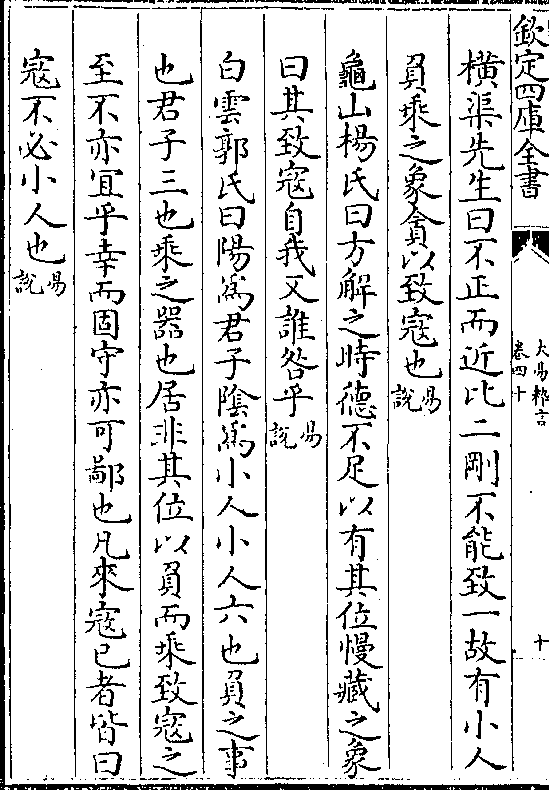 欽定四庫全書
大易粹言
卷四十
十
橫渠先生曰不正而近比二剛不能致一故有小人
負乗之象貪以致寇也易說
龜山楊氏曰方解之時德不足以有其位慢藏之象
曰其致寇自我又誰咎乎易說
白雲郭氏曰陽為君子隂為小人小人六也負之事
也君子三也乗之器也居非其位以負而乗致寇之
至不亦宜乎幸而固守亦可鄙也凡來寇已者皆曰
寇不必小人也易說